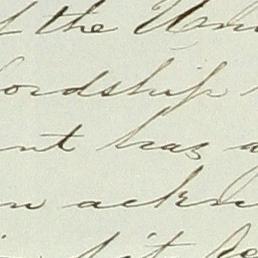 of the Uni
ordship
nt has a
n ackn
it be